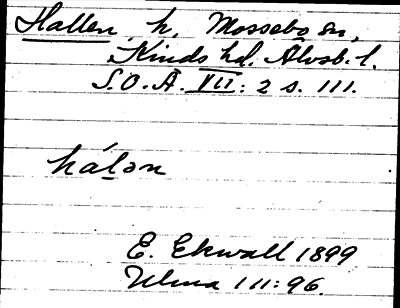 Hallen h. Mossebo sn,
Kinds hd. Älvsb. l.
S.O.Ä. VII: 2 s. 111.
hálən
E. Ekwall 1899
Ulma 111: 96.